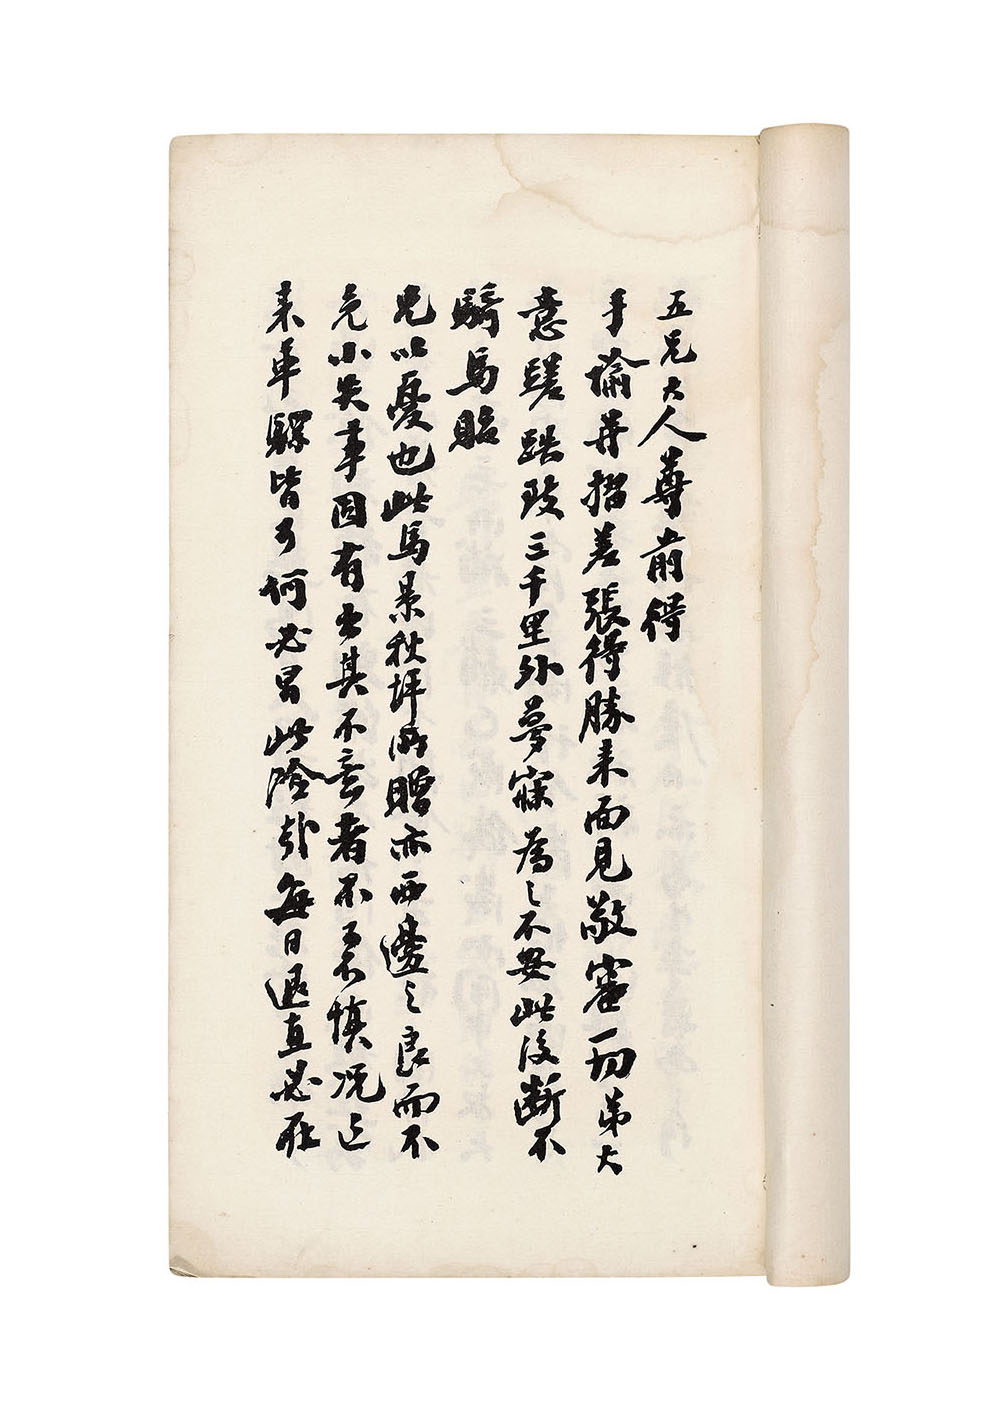 五兄大人尊前得
手諭并摺差張得勝来面見敬審一切弟大
意蹉跌致三千里外夢寐為之不安此後斷不
騎馬貽
兄以憂也此馬景秋坪所贈亦西邊之良而不
免小失事固有出其不意者不可不慎况近
来車騾皆可何必冒此險哉每日退直必在